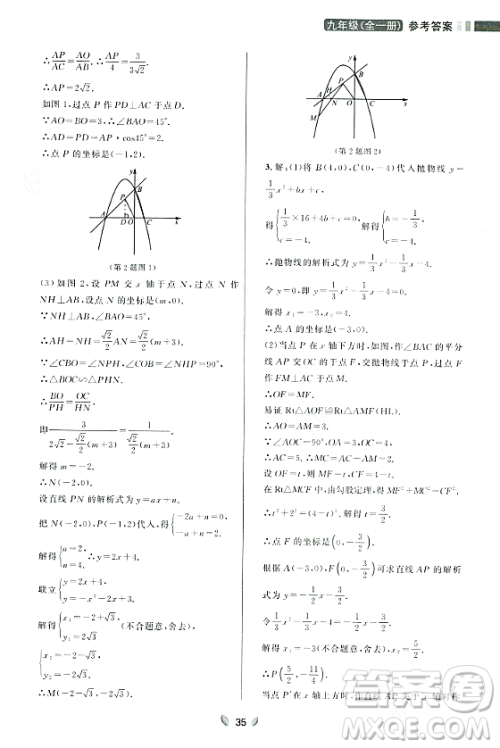 九年级(全一册) 参考答案
∴AP/AC=AO/AF,∴AP/4=3/(3√2).
∴AP=2√2.
如图1,过点P作PD⊥AC于点D.
∵∠BAO=45°,
∴AD=PD=AP·cos45°=2.
∴点P的坐标是(-1,2).
P
B
A
D
O
C
x
(第2题图1)
(3)如图2,设PM交x轴于点N,过点N作
NH⊥AB,设点N的坐标是(m,0).
∵NH⊥AB,∠BAO=45°,
∴AH=NH=√2/2 AN=√2/2(m+3)
∵∠CBO=∠NPH,∠BOC=∠PHN=90°,
∴△BOC∽△PHN.
∴BO/PH=OC/HN.
解得m=-2.
∴N(-2,0).
设直线PN的解析式为y=ax+n.
把N(-2,0),P(-1,2)代入,得{-2a+n=0, -a+n=2.
解得{a=2, n=4. ∴y=2x+4.
联立{y=2x+4, y=-x²-2x+3.
解得{x₁=-2+√3, y₁=2√3 (不合题意,舍去),
{x₂=-2-√3, y₂=-2√3.
∴M(-2-√3,-2√3).
(第2题图2)
3.解:(1)将B(4,0),C(0,-4)代入抛物线y=
1/3x²+bx+c,
得{1/3×16+4b+c=0, c=-4. 解得{b=-1/3, c=-4.
∴抛物线的解析式为y=1/3x²-1/3x-4.
令y=0,即1/3x²-1/3x-4=0.
解得x₁=-3,x₂=4.
∴点A的坐标为(-3,0).
(2)当点P在x轴下方时,如图,作∠BAC的平分
线AP交OC于点F,交抛物线于点P,过点F作
∴OF=MF.
易证Rt△AOF≌Rt△AMF(HL).
∴AO=AM=3.
∵∠AOC=90°,OA=3,OC=4,
∴AC=5.∴MC=AC-AM=2.
设OF=t,则MF=t,CF=4-t.
在Rt△MCF中,由勾股定理,得MF²+MC²=CF².
∴t²+2²=(4-t)².解得t=3/2.
∴点F的坐标是(0,-3/2).
根据A(-3,0),F(0,-3/2)可求直线AP的解析
式为y=-1/2x-3/2.
令-1/2x-3/2=1/3x²-1/3x-4.
解得x₁=-3(不合题意,舍去),x₂=5/2.
∴P(5/2,-11/4).
当点P'在x轴上方时,
35